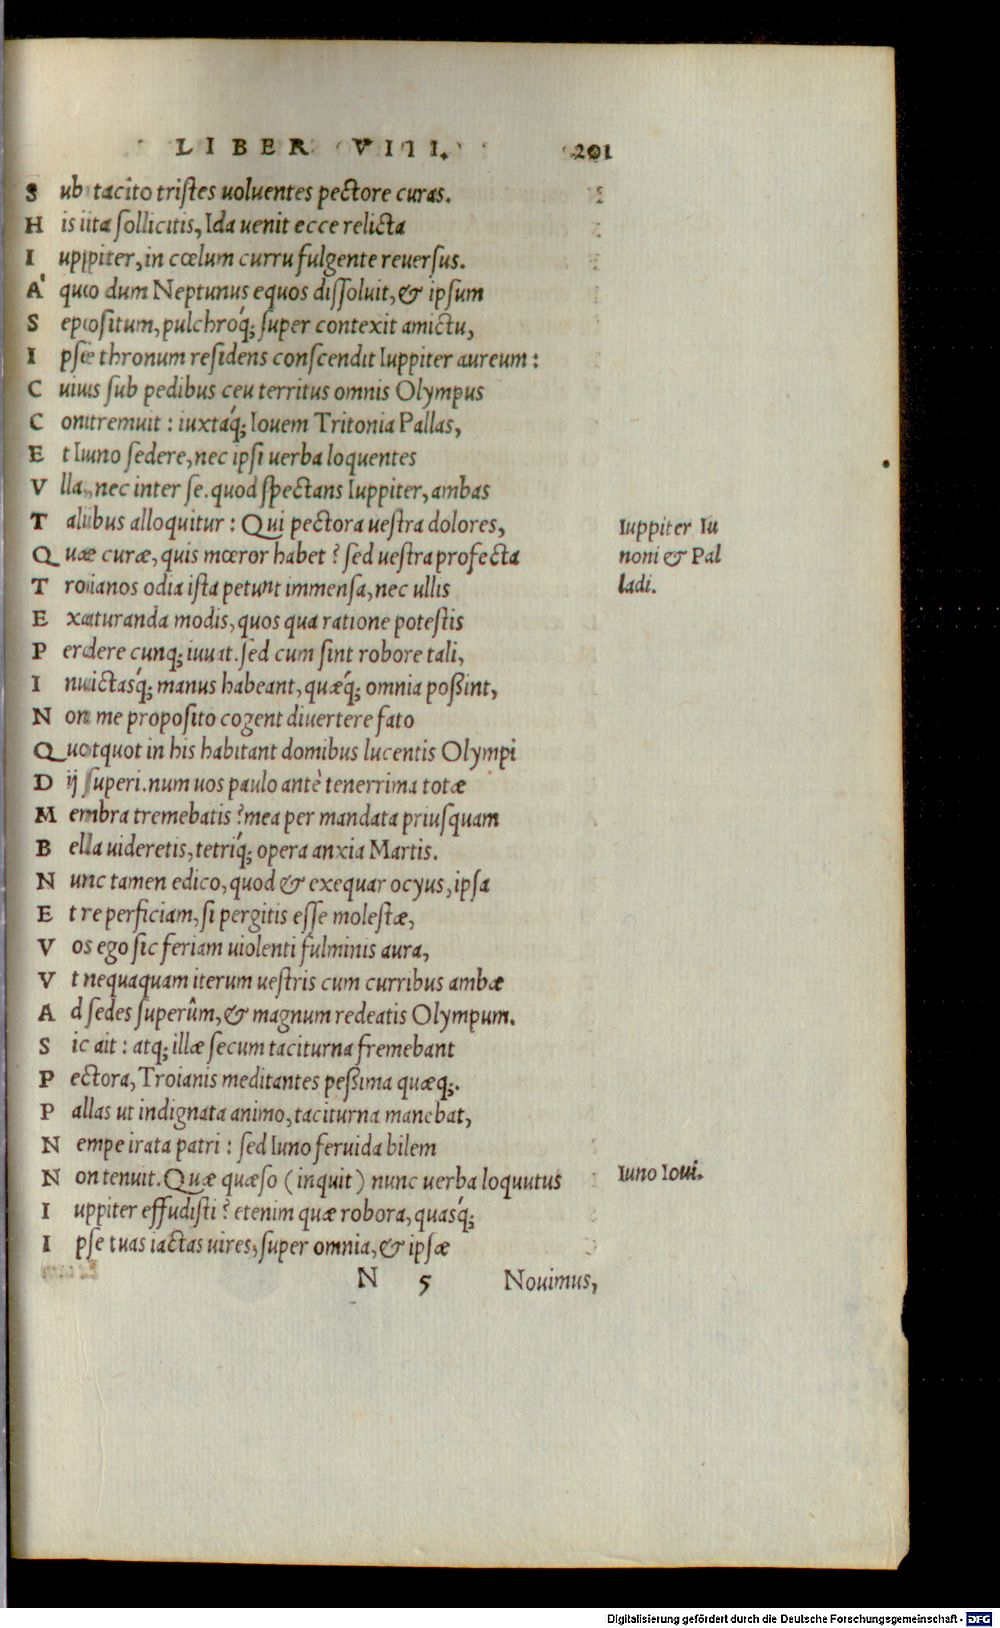 LIBER VIII. 201
Sub tacito tristes uoluentes pectore curas.
His ita sollicitis, Ida uenit ecce relicta
Iuppiter, in cœlum curru fulgente reuersus.
A' quo dum Neptunus equos dissoluit, & ipsum
Sepositum, pulchroq́; super contexit amictu,
Ipse thronum residens conscendit Iuppiter aureum:
Cuius sub pedibus ceu territus omnis Olympus
Contremuit: iuxtaq́; Iouem Tritonia Pallas,
Et Iuno sedere, nec ipsi uerba loquentes
Vlla, nec inter se. quod spectans Iuppiter, ambas
Talibus alloquitur: Qui pectora uestra dolores,
Iuppiter Iu
noni & Pal
ladi.
Quæ curæ, quis mœror habet? sed uestra profecta
Troianos odia ista petunt immensa, nec ullis
Exaturanda modis, quos qua ratione potestis
Perdere cunq; iuuat. sed cum sint robore tali,
Inuictasq́; manus habeant, quæq́; omnia poßint,
Non me proposito cogent diuertere fato
Quotquot in his habitant domibus lucentis Olympi
Dij superi. num uos paulo antè tenerrima totæ
Membra tremebatis? mea per mandata priusquam
Bella uideretis, tetriq́; opera anxia Martis.
Nunc tamen edico, quod & exequar ocyus, ipsa
Et re perficiam, si pergitis esse molestæ,
Vos ego sic feriam uiolenti fulminis aura,
Vt nequaquam iterum uestris cum curribus ambæ
Ad sedes superûm, & magnum redeatis Olympum.
Sic ait: atq; illæ secum taciturna fremebant
Pectora, Troianis meditantes peßima quæq;.
Pallas ut indignata animo, taciturna manebat,
Nempe irata patri: sed Iuno feruida bilem
Non tenuit. Quæ quæso (inquit) nunc uerba loquutus
Iuno Ioui.
Iuppiter effudisti? etenim quæ robora, quasq́;
Ipse tuas iactas uires, super omnia, & ipsæ
N 5 Nouimus,
Digitalisierung gefördert durch die Deutsche Forschungsgemeinschaft - DFG